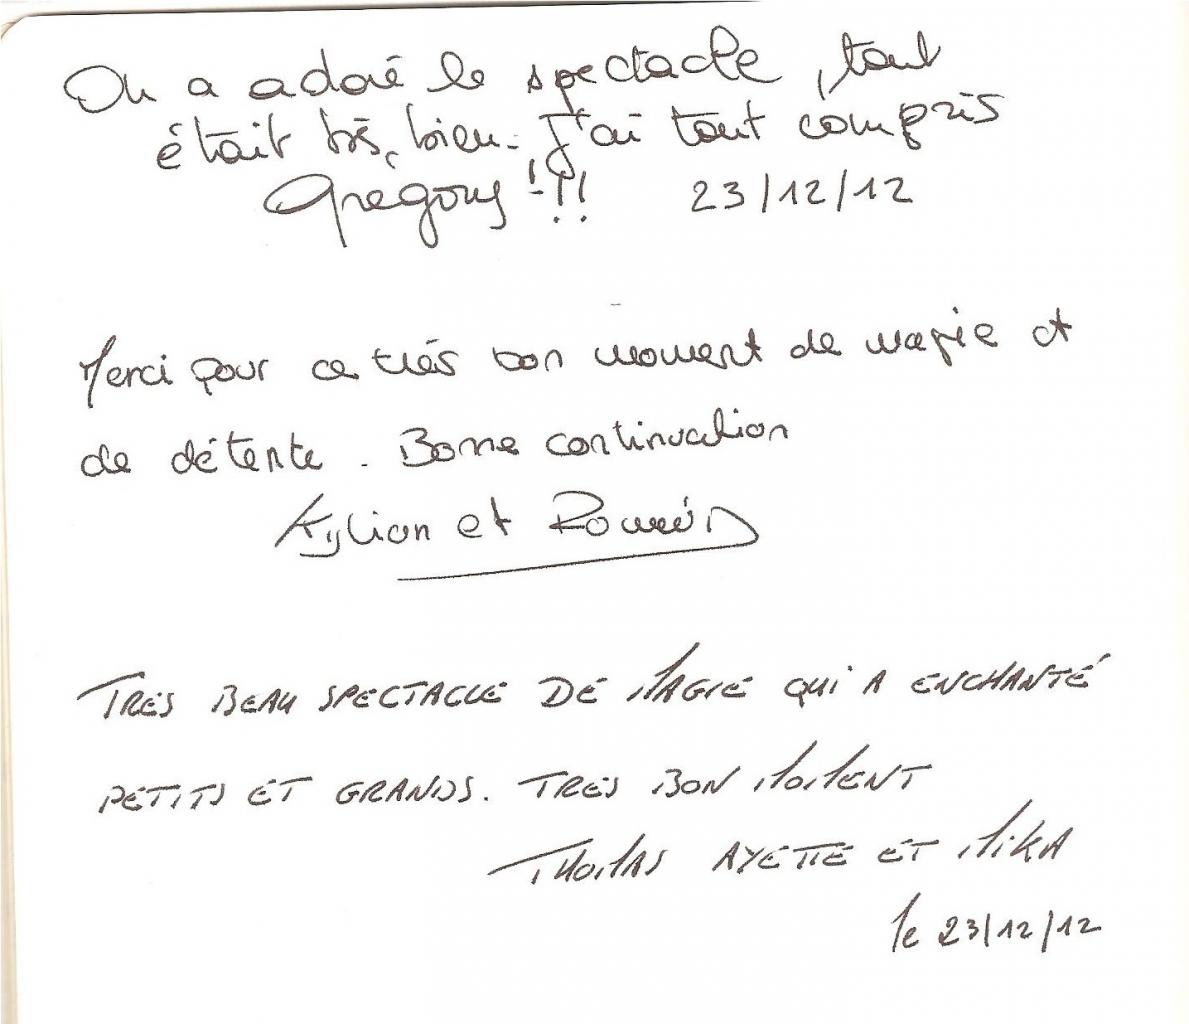 On a adoré le spectacle, tout
était très bien. J'ai tout compris
Grégory !!! 23/12/12
Merci pour ce très bon moment de magie et
de détente. Bonne continuation
Kylian et Roméo
TRES BEAU SPECTACLE DE MAGIE QUI A ENCHANTÉ
PETITS ET GRANDS. TRES BON MOMENT
THOMAS AYETTE ET MIKA
le 23/12/12